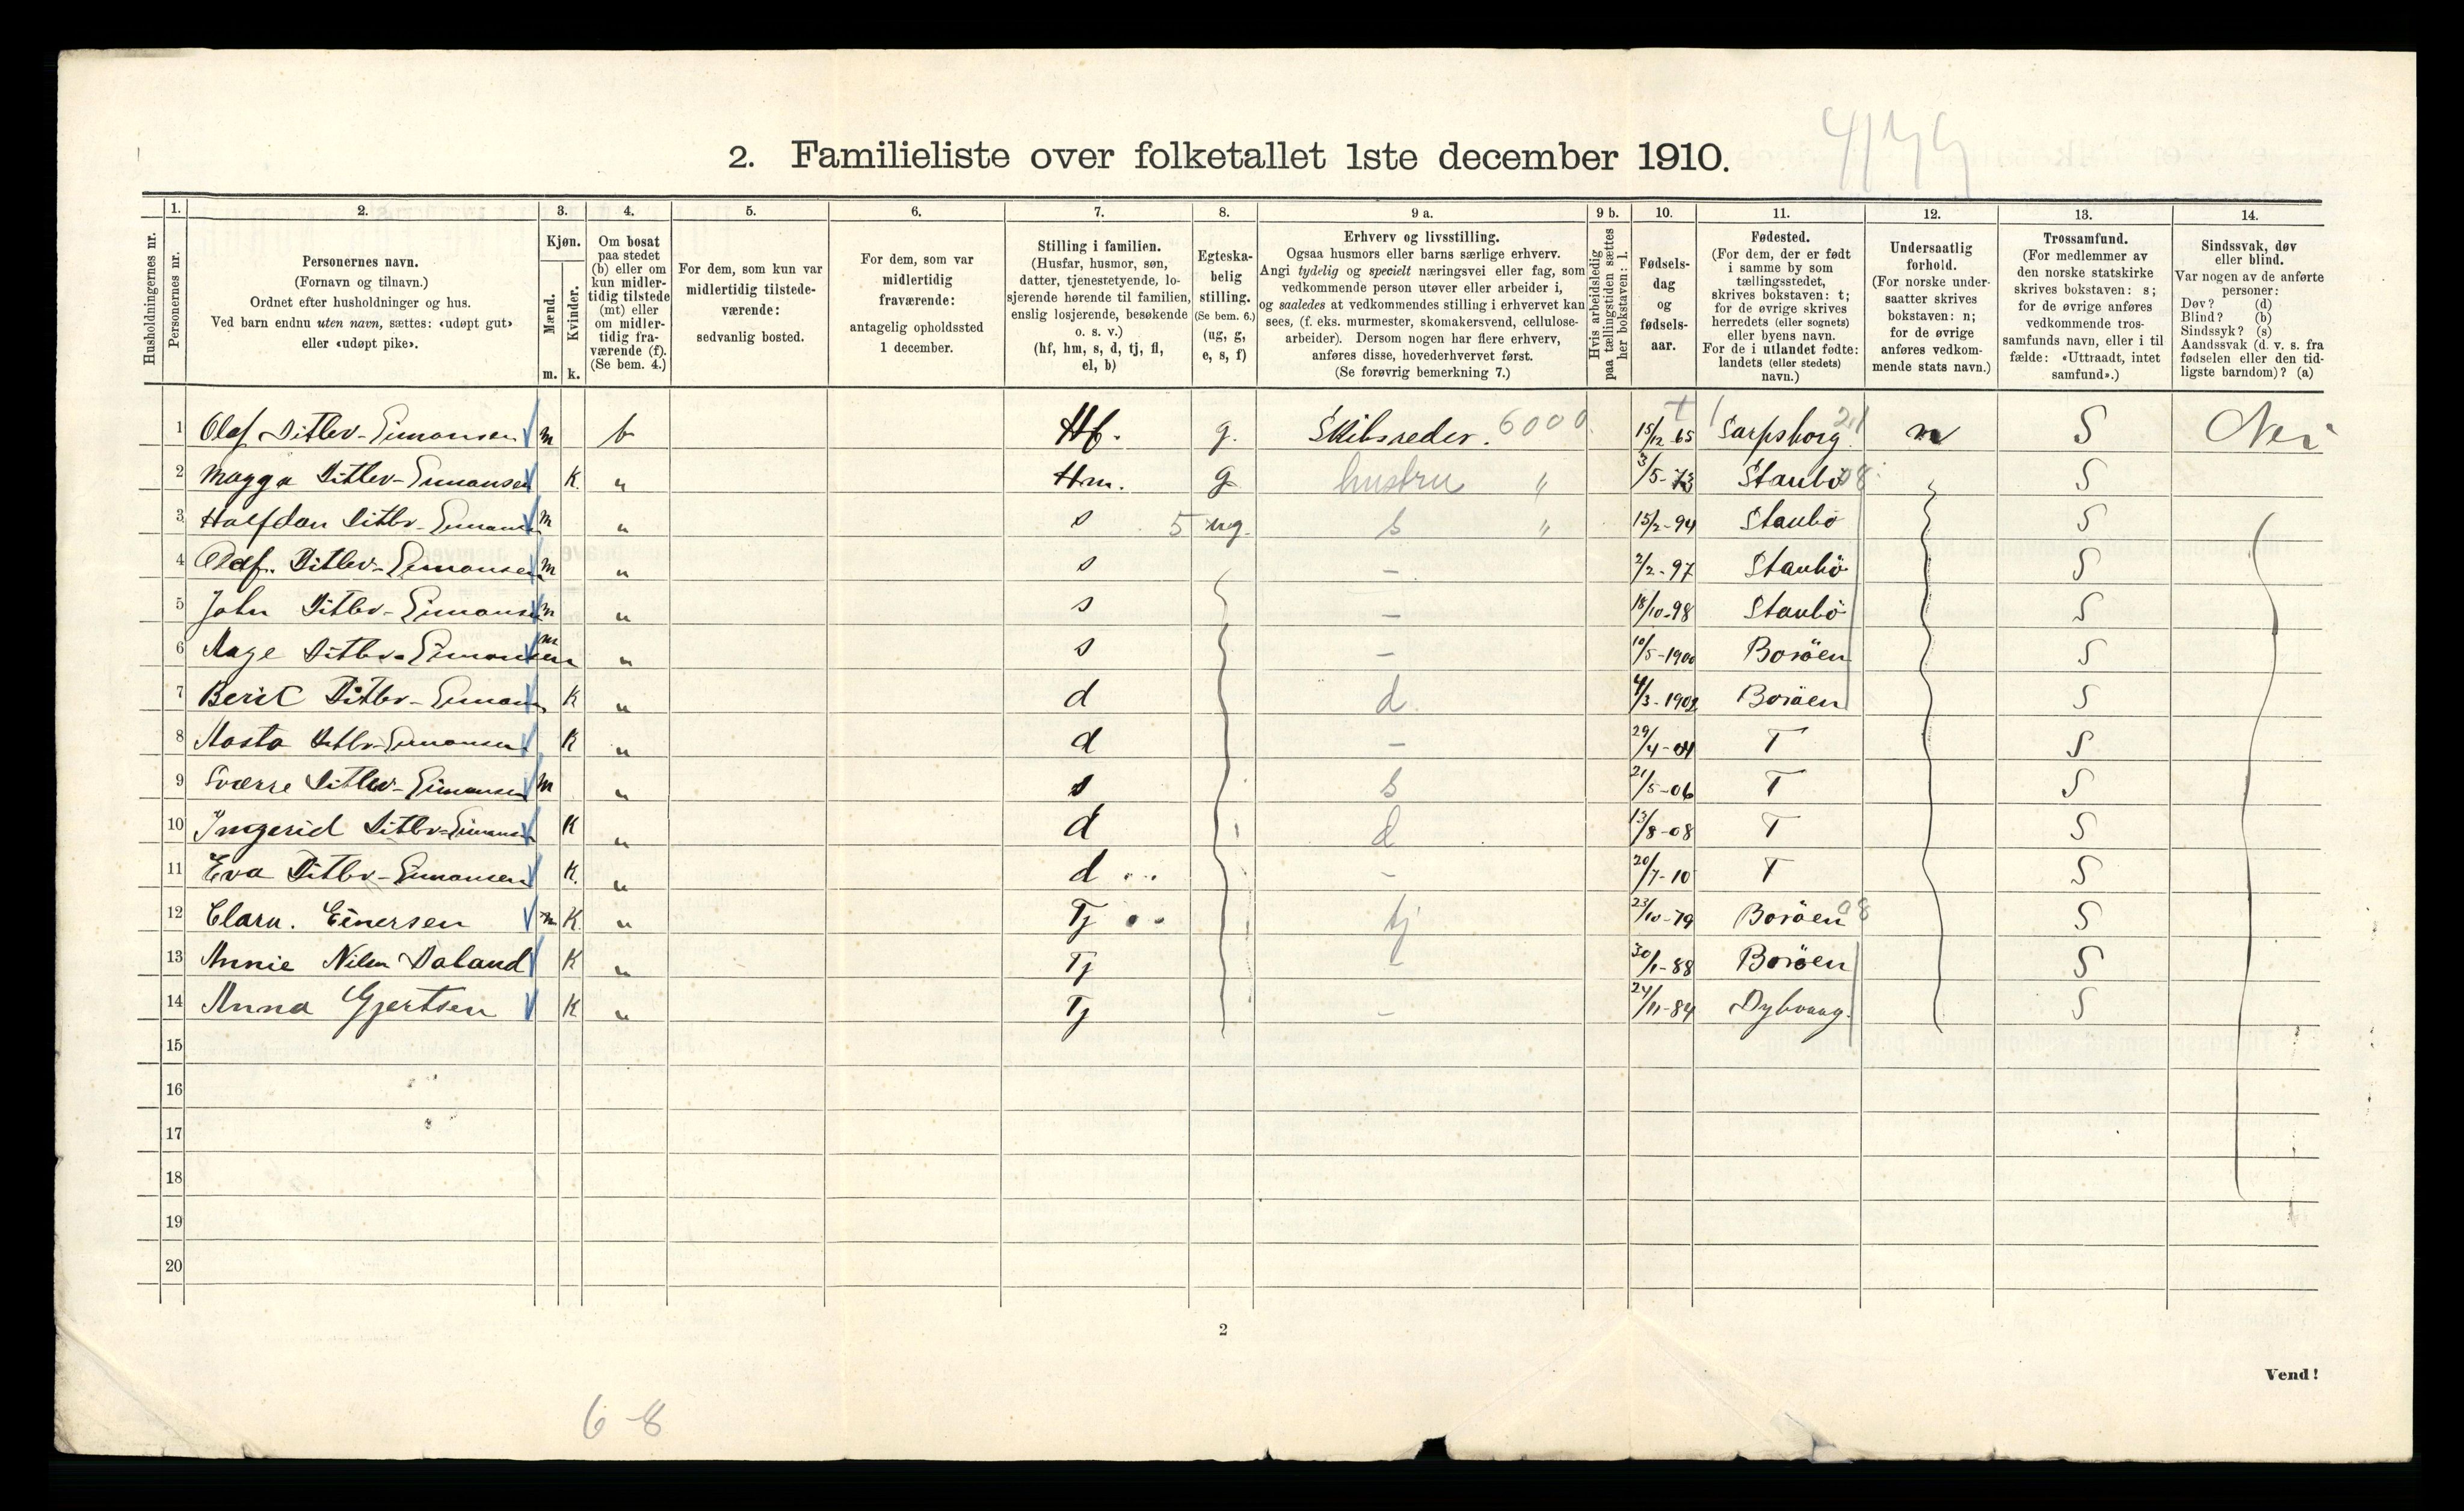 2. Familieliste over folketallet 1ste december 1910.
Husholdningernes nr.
1. Personernes nr.
2. Personernes navn. (Fornavn og tilnavn.) Ordnet efter husholdninger og hus. Ved barn endnu uten navn, sættes: «udøpt gut» eller «udøpt pike».
3. Kjøn. Mænd. m. Kvinder. k.
4. Om bosat paa stedet (b) eller om kun midler-tidig tilstede (mt) eller om midler-tidig fra-værende (f). (Se bem. 4.)
5. For dem, som kun var midlertidig tilstede-værende: sedvanlig bosted.
6. For dem, som var midlertidig fraværende: antagelig opholdssted 1 december.
7. Stilling i familien. (Husfar, husmor, søn, datter, tjenestetyende, lo-sjerende hørende til familien, enslig losjerende, besøkende o. s. v.) (hf, hm, s, d, tj, fl, el, b)
8. Egteska-belig stilling. (Se bem. 6.) (ug, g, e, s, f)
9 a. Erhverv og livsstilling. Ogsaa husmors eller barns særlige erhverv. Angi tydelig og specielt næringsvei eller fag, som vedkommende person utøver eller arbeider i, og saaledes at vedkommendes stilling i erhvervet kan sees, (f. eks. murmester, skomakersvend, cellulose-arbeider). Dersom nogen har flere erhverv, anføres disse, hovederhvervet først. (Se forøvrig bemerkning 7.)
9 b. Hvis arbeidsledig paa tællingstiden sættes her bokstaven: l.
10. Fødsels-dag og fødsels-aar.
11. Fødested. (For dem, der er født i samme by som tællingsstedet, skrives bokstaven: t; for de øvrige skrives herredets (eller sognets) eller byens navn. For de i utlandet fødte: landets (eller stedets) navn.)
12. Undersaatlig forhold. (For norske under-saatter skrives bokstaven: n; for de øvrige anføres vedkom-mende stats navn.)
13. Trossamfund. (For medlemmer av den norske statskirke skrives bokstaven: s; for de øvrige anføres vedkommende tros-samfunds navn, eller i til fælde: «Uttraadt, intet samfund».)
14. Sindssvak, døv eller blind. Var nogen av de anførte personer: Døv? (d) Blind? (b) Sindssyk? (s) Aandssvak (d. v. s. fra fødselen eller den tid-ligste barndom)? (a)
1 Olaf Ditlev-Simonsen m b Hf. g. Skibsreder. 6000. 15/12 65 Sarpsborg. n S Nei
2 Magga Ditlev-Simonsen K. " Hm. g hustru " 3/5-73 Staubö S
3 Halfdan Ditlev-Simonsen m " s 5 ug. s " 15/2-94 Staubö S
4 Olaf. Ditlev-Simonsen m " s - 2/2-97 Staubö S
5 John Ditlev-Simonsen m " s - 18/10-98 Staubö S
6 Aage Ditlev-Simonsen m " s - 10/5-1900 Boröen S
7 Berit Ditlev-Simonsen K " d d. 4/3-1902 Boröen S
8 Aasta Ditlev-Simonsen K " d - 29/4-04 T S
9 Sværre Ditlev-Simonsen m " s s 21/5-06 T S
10 Ingerid Ditlev-Simonsen K " d d 13/8-08 T S
11 Eva Ditlev-Simonsen K. " d - 20/7-10 T S
12 Clara. Einersen m K. " Tj tj 23/10-79 Boröen S
13 Annie Nilsen Daland K " Tj - 30/1-88 Boröen S
14 Anna Gjertsen K " Tj - 24/11-84 Dybvaag. S
15
16
17
18
19
20
2
Vend!
6-8